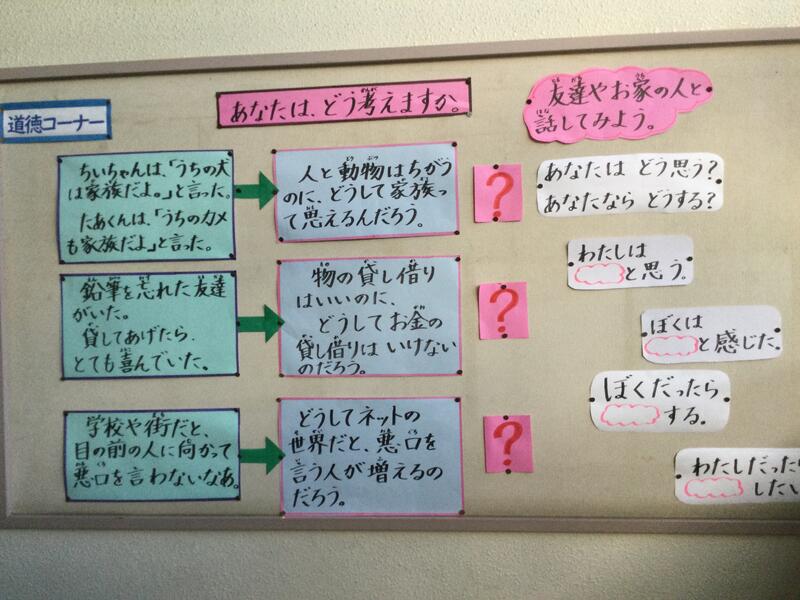 道徳コーナー
あなたは、どう考えますか。
友達やお家の人と
話してみよう。
ちいちゃんは、「うちの犬
は家族だよ。」と言った。
たあくんは、「うちのカメ
も家族だよ」と言った。
人と動物はちがう
のに、どうして家族っ
て思えるんだろう。
?
あなたは どう思う?
あなたなら どうする?
鉛筆を忘れた友達
がいた。
貸してあげたら、
とても喜んでいた。
物の貸し借り
はいいのに、
どうしてお金の
貸し借りは いけない
のだろう。
?
わたしは
と思う。
ぼくは
と感じた。
学校や街だと、
目の前の人に向かって
悪口を言わないなあ。
どうしてネットの
世界だと、悪口を
言う人が増えるの
だろう。
?
ぼくだったら
する。
わたしだったら
したい